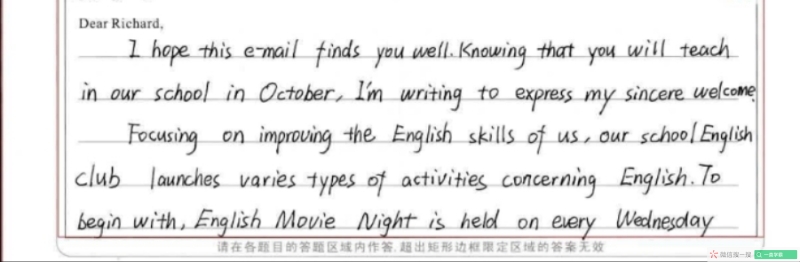 Dear Richard,
I hope this e-mail finds you well. Knowing that you will teach
in our school in October, I'm writing to express my sincere welcome.
Focusing on improving the English skills of us, our school English
club launches varies types of activities concerning English. To
begin with, English Movie Night is held on every Wednesday
请在各题目的答题区域内作答，超出矩形边框限定区域的答案无效